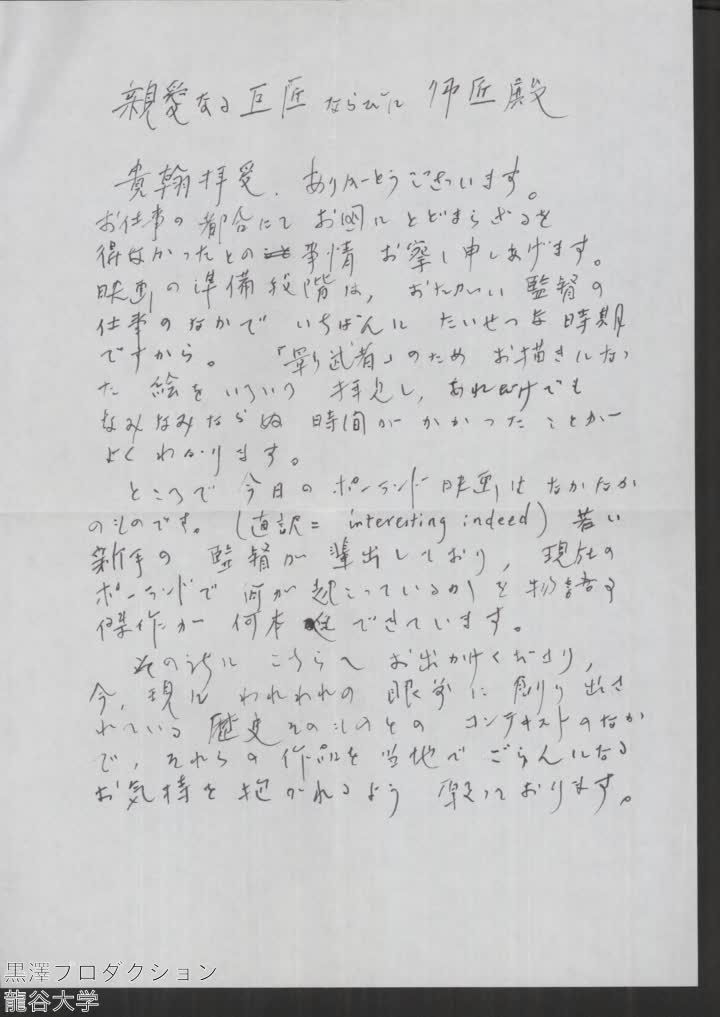 親愛なる巨匠ならびに 師匠殿
貴翰拝受、ありがとうございます。
お仕事の都合にて お国にとどまらざるを
得なかったとの事情 お察し申しあげます。
映画の準備段階は、おたがい監督の
仕事のなかで いちばんに たいせつな時期
ですから。 「影武者」のため お描きになっ
た 絵を いろいろ 拝見し、あれだけでも
なみなみならぬ 時間が かかったことが
よくわかります。
ところで 今日の ポーランド映画は なかなか
のものです。(直訳= interesting indeed) 若い
新手の 監督が 輩出しており、現在の
ポーランドで 何が 起こっているか を 物語る
傑作が 何本 できています。
そのうちに こちらへ お出かけくださり、
今、現に われわれの 眼前に 彫り出さ
れている 歴史そのものとの コンテキストのなか
で、それらの 作品を 当地で ごらんになる
お気持を 抱かれるよう 願っております。
黒澤プロダクション
龍谷大学